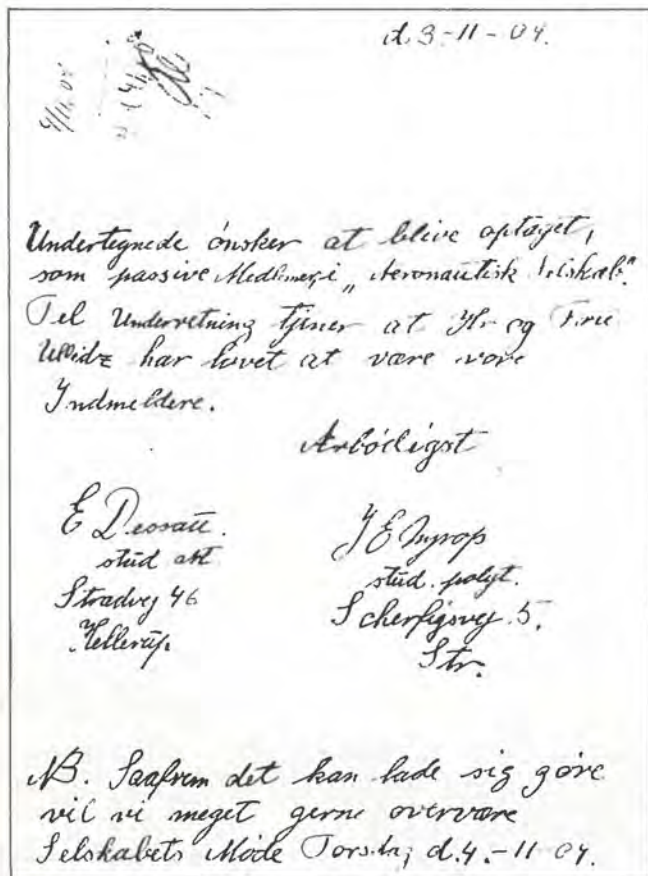 d. 3-11-09.
4/11 09
Undertegnede ønsker at blive optaget,
som passive Medlemmer i „Aeronautisk Selskab".
Til Underretning tjener at Hr og Frue
har lovet at være vore
Indmeldere.
Ærbödigst
E
stud art
Stradvej 46
Hellerup.
J E Nyrop
stud. polyt.
Scherfigsvej 5.
Str.
NB. Saafrem det kan lade sig gøre
vil vi meget gerne overvære
Selskabets Møde Torsdag d. 4.-11 09.